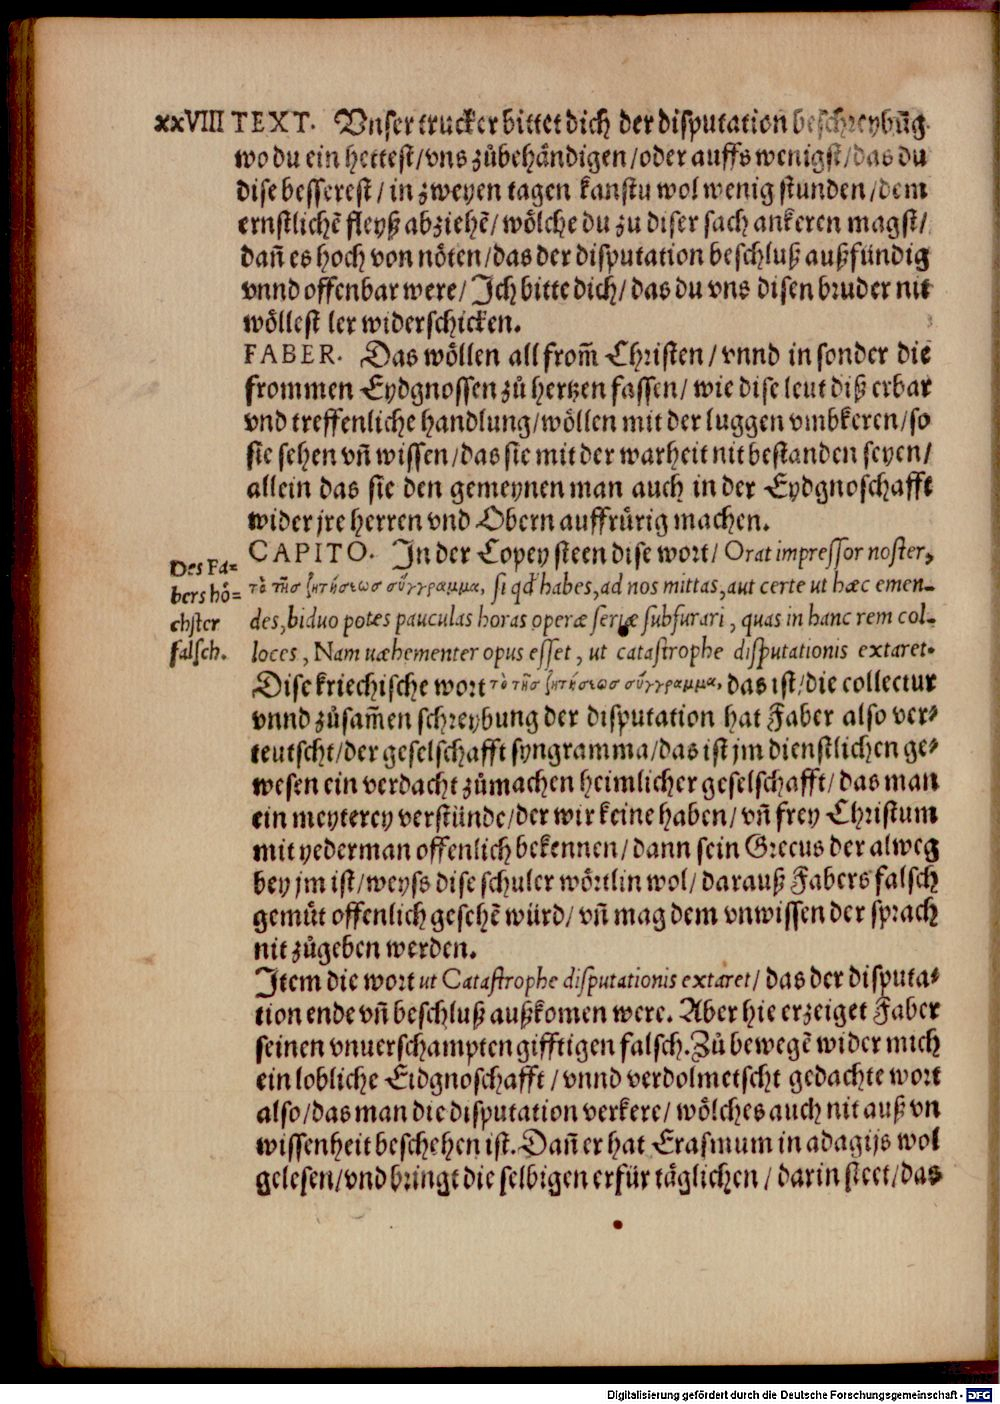 xxVIII TEXT. Vnser trucker bittet dich der disputation beschreybūg
wo du ein hettest/vns zůbehändigen/oder auffs wenigst/das du
dise besserest/in zweyen tagen kanstu wol wenig stunden/dem
ernstlichē fleyß abziehē/wölche du zu diser sach ankeren magst/
dañ es hoch von nöten/das der disputation beschluß außfündig
vnnd offenbar were/Ich bitte dich/das du vns disen bruder nit
wöllest ler widerschicken.
FABER. Das wöllen all from̄ Christen/vnnd in sonder die
frommen Eydgnossen zů hertzen fassen/wie dise leut diß erbar
vnd treffenliche handlung/wöllen mit der luggen vmbkeren/so
sie sehen vñ wissen/das sie mit der warheit nit bestanden seyen/
allein das sie den gemeynen man auch in der Eydgnoschafft
wider jre herren vnd Obern auffrürig machen.
CAPITO. In der Copey steen dise wort/Orat impressor noster,
Des Fa-
bers hö=
chster
falsch.
τὸ τῆσ ζητήσεωσ σύγγραμμα, si qd habes, ad nos mittas, aut certe ut hæc emen-
des, biduo potes pauculas horas operæ seriæ subfurari, quas in hanc rem col-
loces, Nam uæhementer opus esset, ut catastrophe disputationis extaret.
Dise kriechische wort τὸ τῆσ ζητήσεωσ σύγγραμμα, das ist/die collectur
vnnd zůsam̄en schreybung der disputation hat Faber also ver-
teutscht/der geselschafft syngramma/das ist jm dienstlichen ge-
wesen ein verdacht zůmachen heimlicher geselschafft/das man
ein meyterey verstünde/der wir keine haben/vñ frey Christum
mit yederman offenlich bekennen/dann sein Grecus der alweg
bey jm ist/weyß dise schuler wörtlin wol/darauß Fabers falsch
gemůt offenlich gesehē würd/vñ mag dem vnwissen der sprach
nit zůgeben werden.
Item die wort ut Catastrophe disputationis extaret/das der disputa-
tion ende vñ beschluß außkomen were. Aber hie erzeiget Faber
seinen vnuerschampten gifftigen falsch. Zů bewegē wider mich
ein lobliche Eidgnoschafft/vnnd verdolmetscht gedachte wort
also/das man die disputation verkere/wölches auch nit auß vn
wissenheit beschehen ist. Dañ er hat Erasmum in adagijs wol
gelesen/vnd bringt die selbigen erfür täglichen/darin steet/das
Digitalisierung gefördert durch die Deutsche Forschungsgemeinschaft - DFG